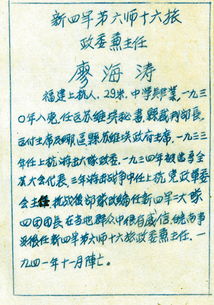 新四军第六师十六旅
政委兼主任
廖海涛
福建上杭人，29岁，中学毕业，一九三
〇年入党，任区苏维埃秘书，县裁判部长，
区付主席及县苏维埃政府主席，一九三三
年任上杭游击大队政委，一九三四年被选举全
苏大会代表，三年游击战争中任上杭党政军委
会主席，抗战后部队改编任新四军二大队
四团团长，在当地群众中很有威信，皖南事
变后任新四军第六师十六旅政委兼主任，一
九四一年十一月阵亡。